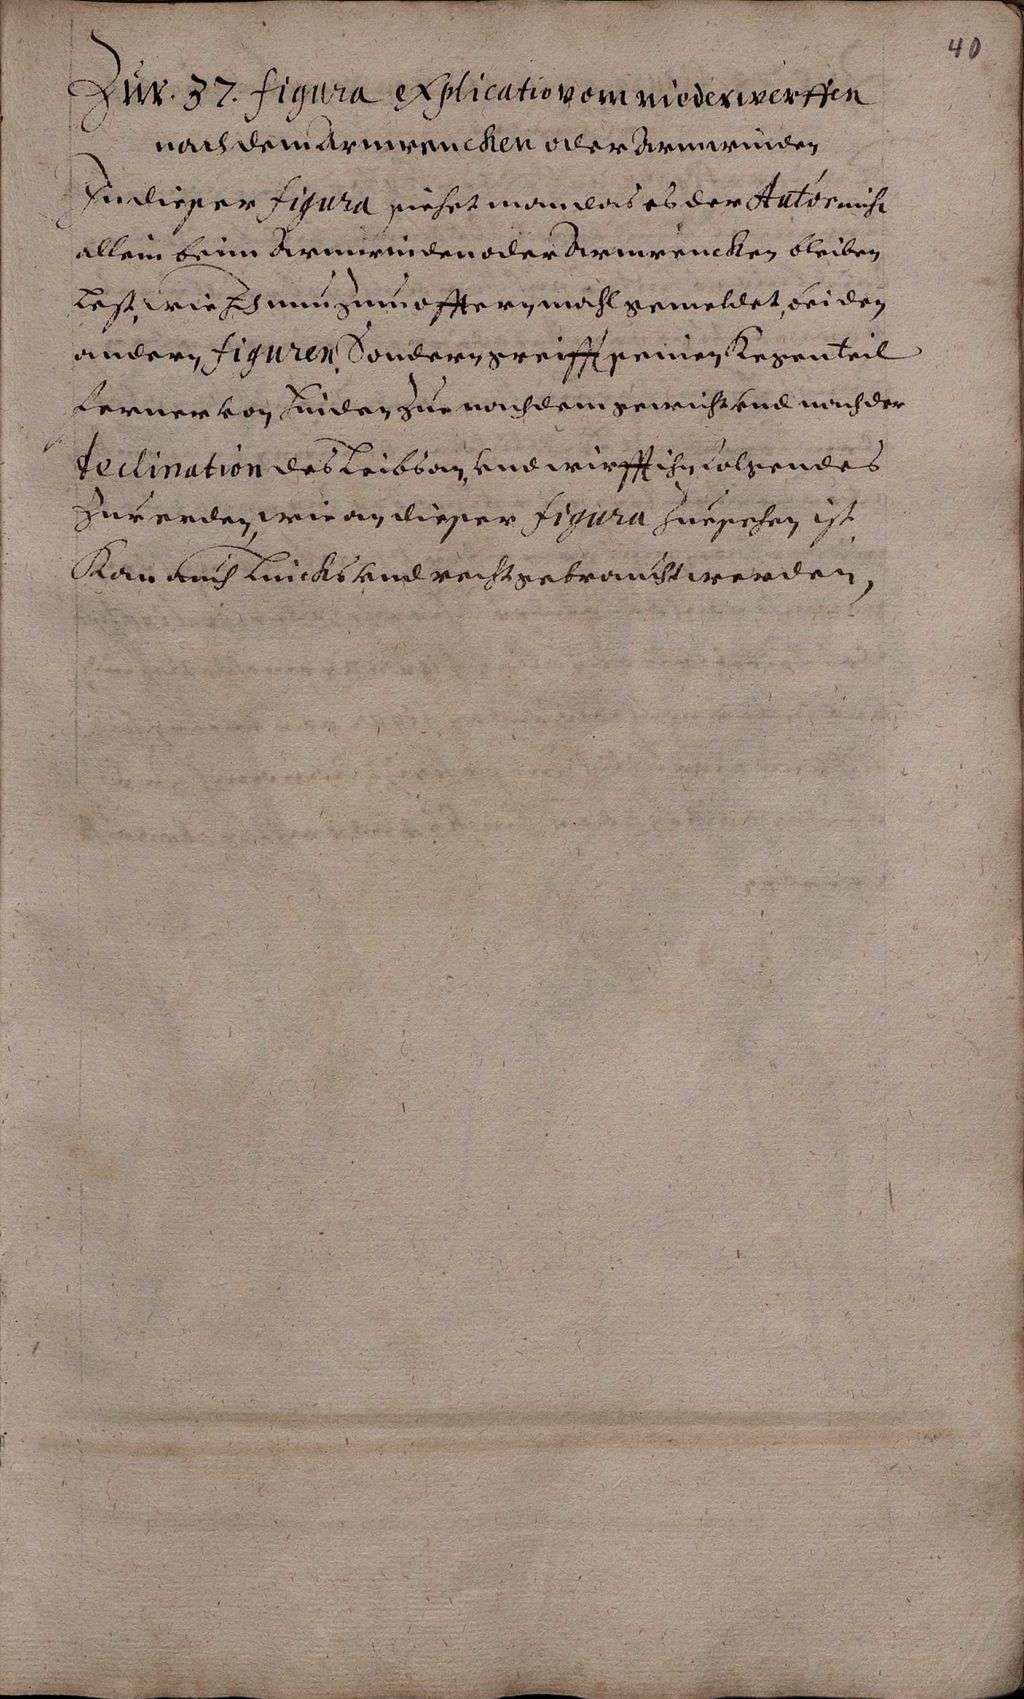 40
Zur. 37. figura explicatio vom niederwerffen
nach dem Armrencken oder Armwinden
In dieser figura siehet man das es der Autor nicht
allein beim Armwinden oder Armrencken bleiben
lest, wie Ich nuhn zum offtern mahl gemeldet, bei den
andern figuren, Sondern greifft seinen Kegenteil
ferner von hinden zue nach dem gewicht und nach der
declination des Leibs an, und wirfft ihn folgendes
Zur erden, wie an dieser figura zue sehen ist
Kan auch Lincks und recht gebraucht werden,